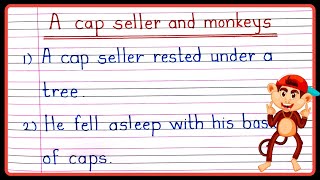 A cap seller and monkeys
1) A cap seller rested under a
tree.
2) He fell asleep with his bas
of caps.